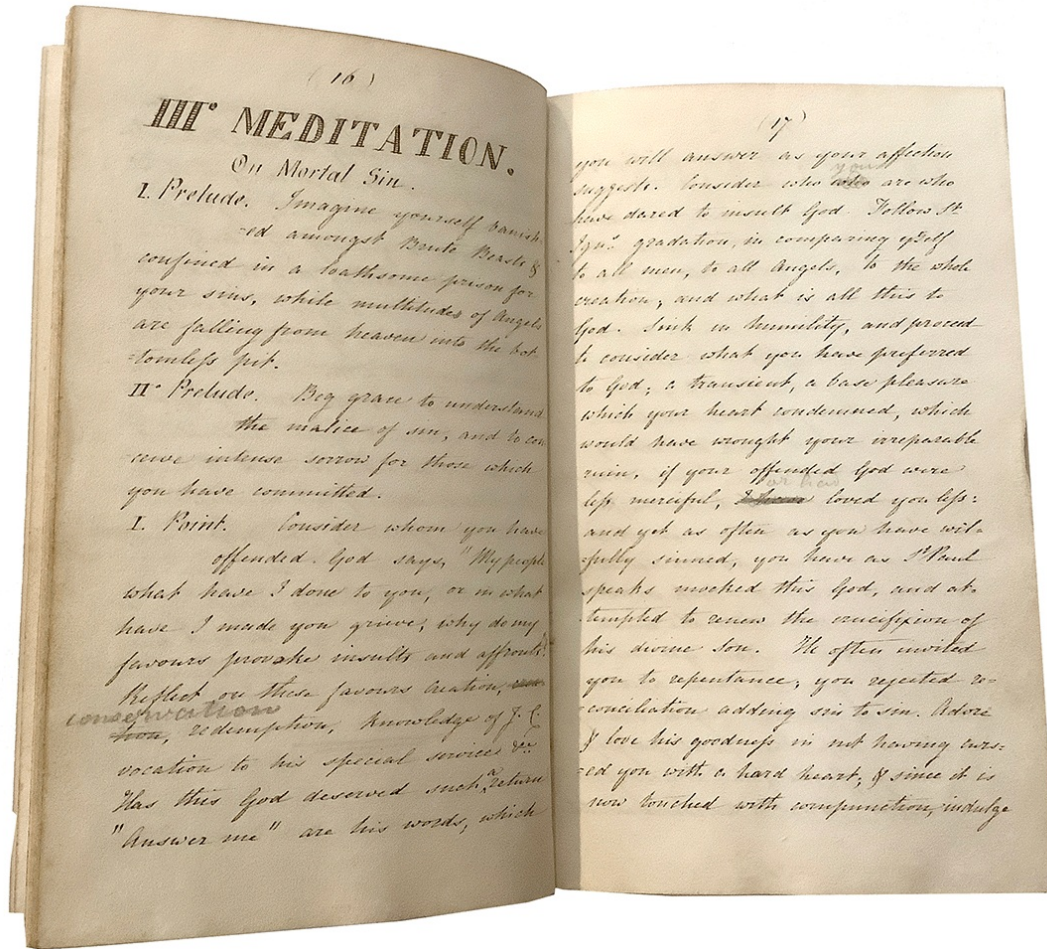 (16)
IIIº MEDITATION.
On Mortal Sin.
I. Prelude. Imagine yourself banish-
-ed amongst Brute Beasts &
confined in a loathsome prison for
your sins, while multitudes of Angels
are falling from heaven into the bot
=tomless pit.
IIº Prelude. Beg grace to understand
the malice of sin, and to con
ceive intense sorrow for those which
you have committed.
I. Point. Consider whom you have
offended. God says, "My people
what have I done to you, or in what
have I made you grieve, why do my
favours provoke insults and affronts?
Reflect on these favours creation,
conservation
redemption, knowledge of J. C.
vocation to his special service &c
Has this God deserved such a return
"Answer me" are his words, which
(17)
you will answer as your affection
your
suggests. Consider who who are who
have dared to insult God. Follow St
Igns gradation, in comparing yself
to all men, to all Angels, to the whole
creation; and what is all this to
God. Sink in humility, and proceed
to consider what you have preferred
to God; a transient, a base pleasure
which your heart condemned, which
would have wrought your irreparable
ruin, if your offended God were
or had
less merciful, loved you less:
and yet as often as you have wil-
-fully sinned, you have as St Paul
speaks mocked this God, and at-
tempted to renew the crucifixion of
his divine Son. He often invited
you to repentance; you rejected re-
conciliation adding sin to sin. Adore
& love his goodness in not having curs-
=ed you with a hard heart; & since it is
now touched with compunction, indulge